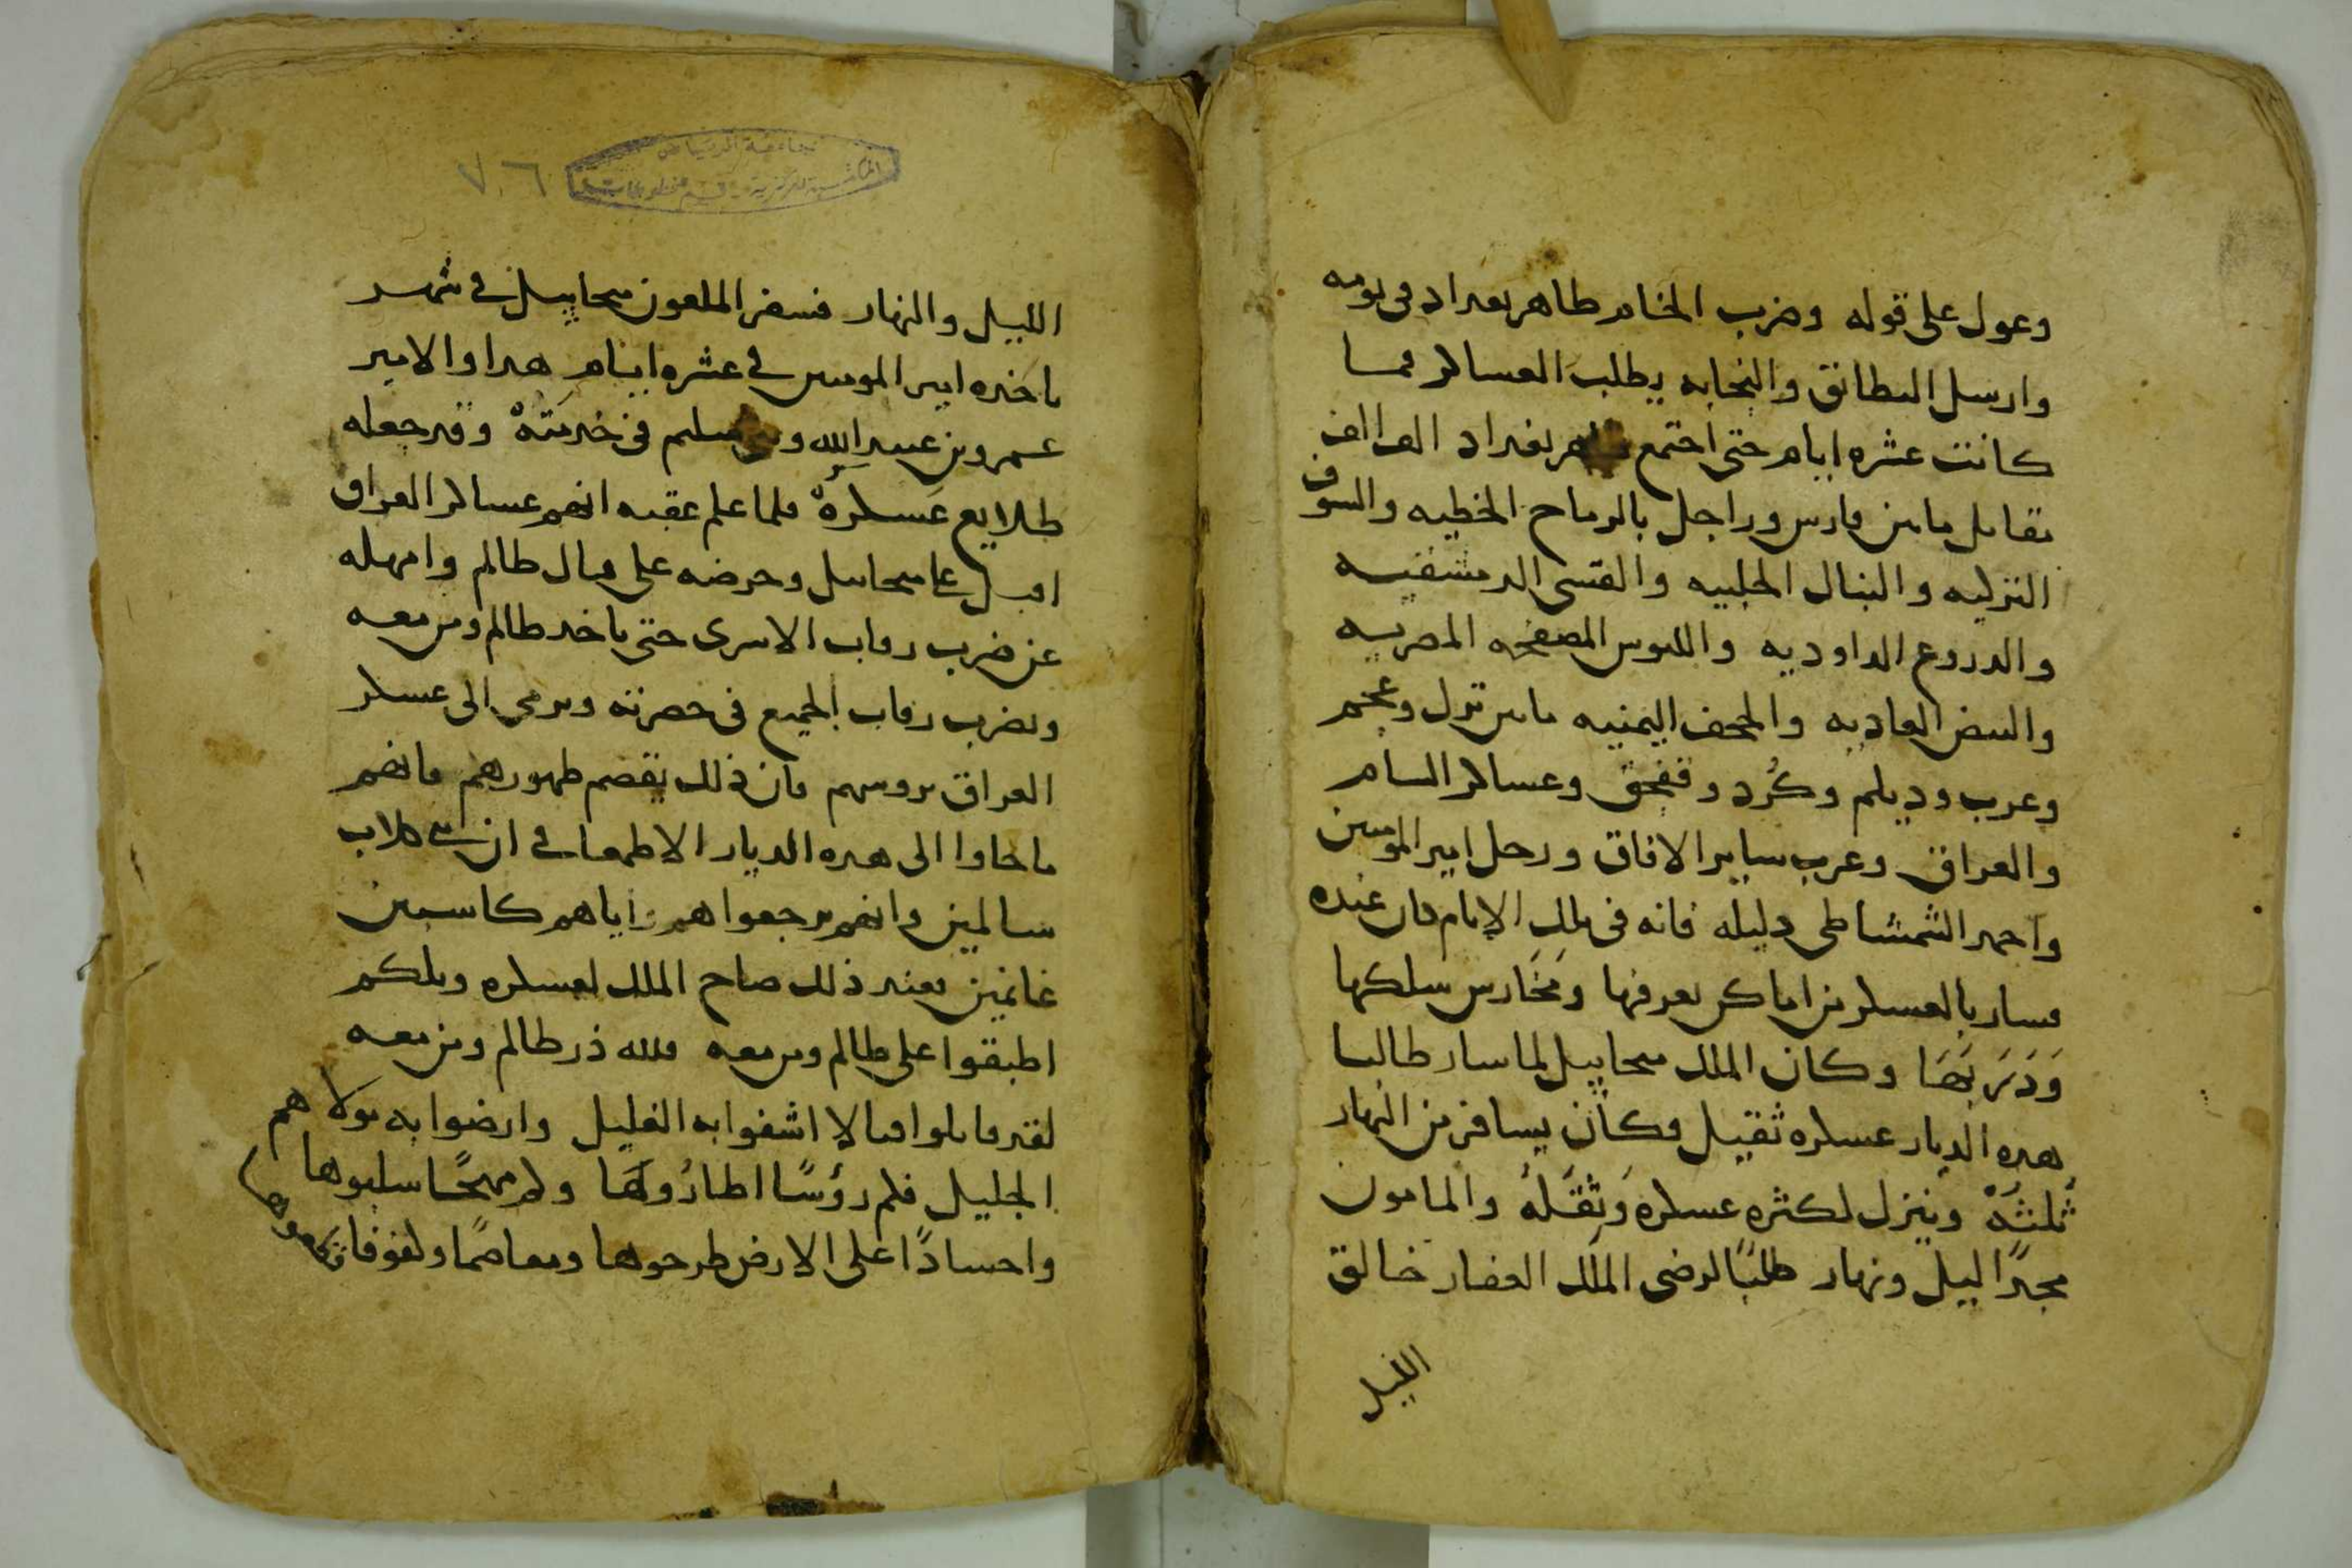 وعول على قوله وضرب الخيام طاهر بغداد فى يومه
وارسل البطائق والنجابه يطلب العساكر فما
كانت عشره ايام حتى اجتمع بغداد الف الف
مقاتل ما بين فارس وراجل بالرماح الخطيه والسيوف
النزليه والنبال الحلبيه والقسى الدمشقيه
والدروع الداوديه واللبوس المصفحه المصريه
والبيض العاديه والجحف اليمنيه ما بين ترك وعجم
وعرب وديلم وكُرد وقفجق وعساكر الشام
والعراق وعرب ساير الافاق ورحل امير المومنين
واحمد الشمشاطى دليله فانه فى تلك الايام كان عنده
فسار بالعسكر من اماكن يعرفها ومَخَارس سلكها
وَدَرَبَهَا وكان الملك ميحاييل لما سار طالبا
هده الديار عسكره ثقيل فكان يسافر من النهار
ثُلثَهُ وينزل لكثره عسكره وَثَقَلهُ والمامون
مجدًا ليل ونهار طلبًا لرضى الملك الغفار خالق
الليل
جامعة الرياض
المكتبة المركزية - قسم مخطوطات
٧٠٦
الليل والنهار فسفر الملعون ميحاييل فى شهر
ياخده امير المومنين فى عشره ايام هدا والامير
عمرو بن عبيد الله وبنى سليم فى خدمَتهْ وقد جعله
طلايع عَسكرهْ فلما علم عقبه انهم عساكر العراق
اقبل على ميحاييل وحرضه على قتال ظالم وامهله
عن ضرب رقاب الاسرى حتى ياخد ظالم ومن معه
ويضرب رقاب الجميع فى حضرته ويرمى الى عسكر
العراق بروسهم فان ذلك يقصم ظهورهم فانهم
ما جاوا الى هده الديار الا طمعا فى ان بنى كلاب
سالمين وانهم يرجعوا هم واياهم كاسبين
غانمين فعند ذلك صاح الملك لعسكره ويلكم
اطبقوا على ظالم ومن معه فلله ذر ظالم ومن معه
لقد قاتلوا قتالا اشفوا به الغليل وارضوا به مولاهم
الجليل فلم رؤسًا اطارُوهَا ولم مهجًا سلبوها
واجسادًا على الارض طرحوها ومعاصمًا وكفوفا